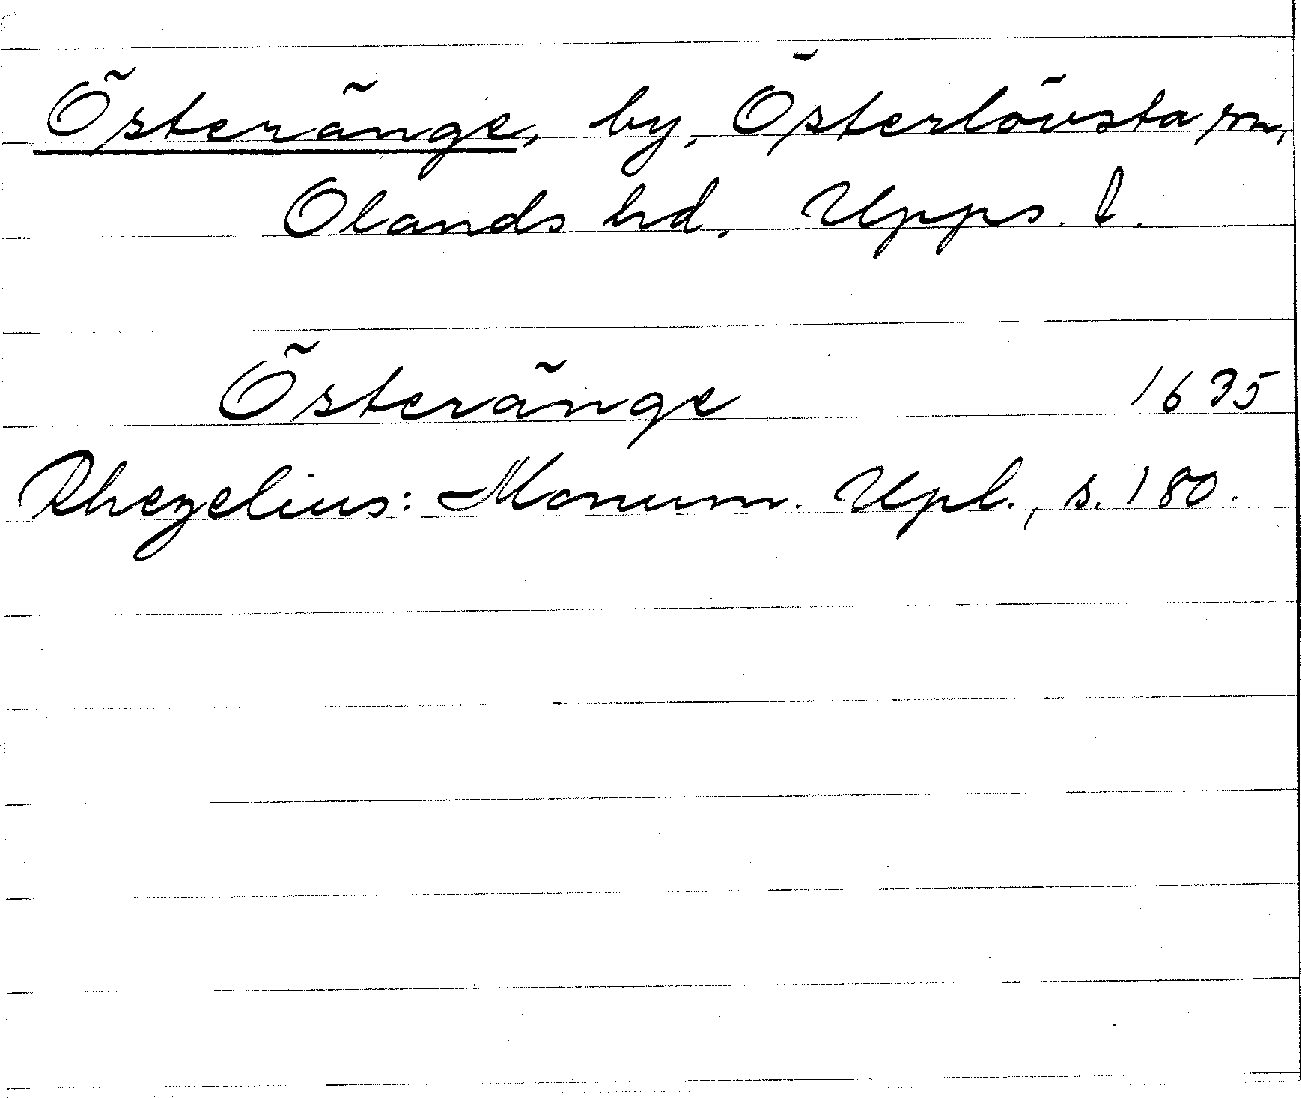 Österänge, by, Österlövsta sn,
Olands hd. Upps. l.
Österänge 1635
Rhezelius: Monum. Upl., s. 180.